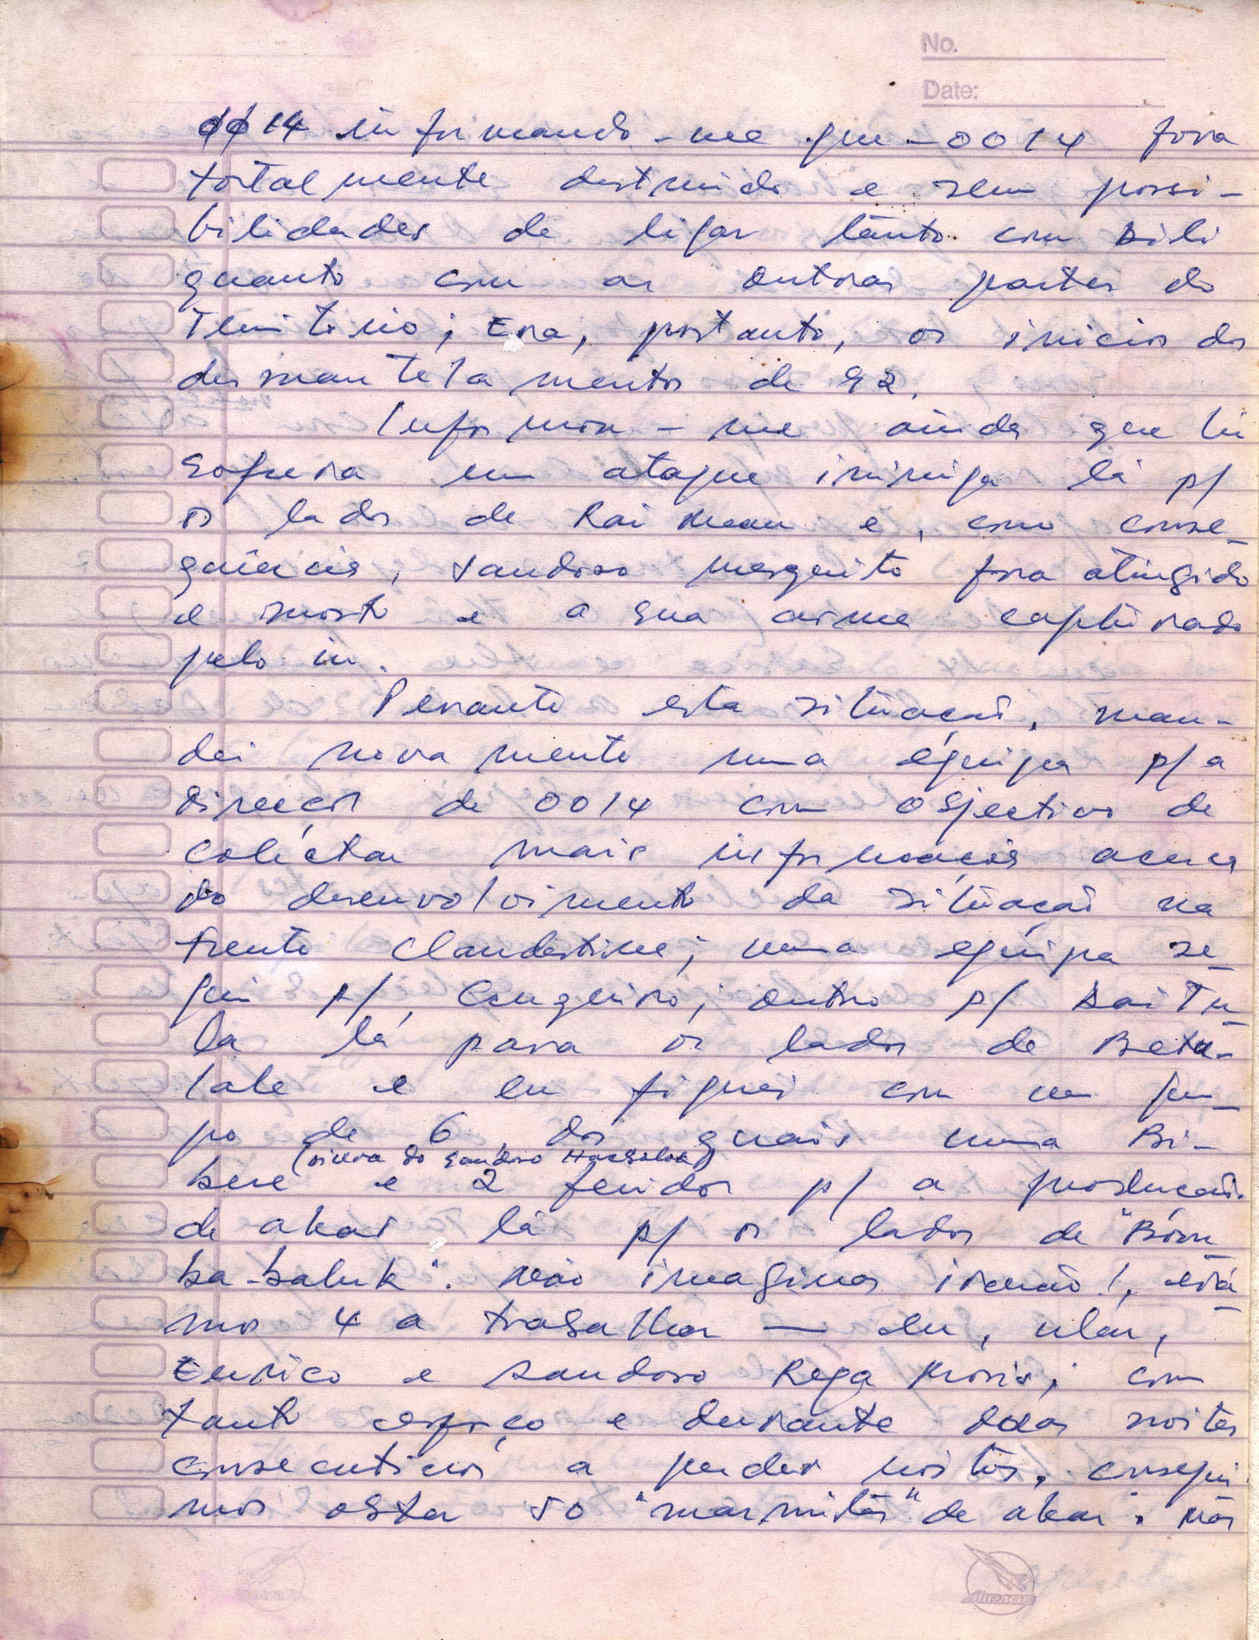 No.
Date:
0014 informando-me que -0014 fora
totalmente destruido e sem possi-
bilidades de ligar tanto com Dili
quanto com as outras partes do
Território; Era, portanto, os inicios do
desmantelamento de 92.
Informou-me ainda que lu
sofrera um ataque inimigo lá p/
os lados de Raimean e, como conse-
quência, Sandoso mesquita fora atingido
e morto e a sua arma capturado
pelo in.
Perante esta situação, man-
dei novamente uma équipa p/a
direcção de 0014 com objectivo de
coléctar mais informações acerca
do desenvolvimento da situação na
Frente Clandestina; uma equipa se-
guiu p/ Cruzeiro; outro p/ Daitu-
la lá para os lados de Beta-
lale e eu fiquei com um gru-
po de 6, dos quais uma Bi-
(viuva do Sandoso
bere e 2 feridos p/ a producão
de akar lá p/ os lados de "Bom
ba-baluk". Não imaginas irmão!, está-
mos 4 a trabalhar — eu, ular,
Eurico e Sandoso Rega Moris; com
tanto esforço e durante duas noites
consecutivas a perder noites, consegui
mos obter 50 "marmitas" de akar. Nós